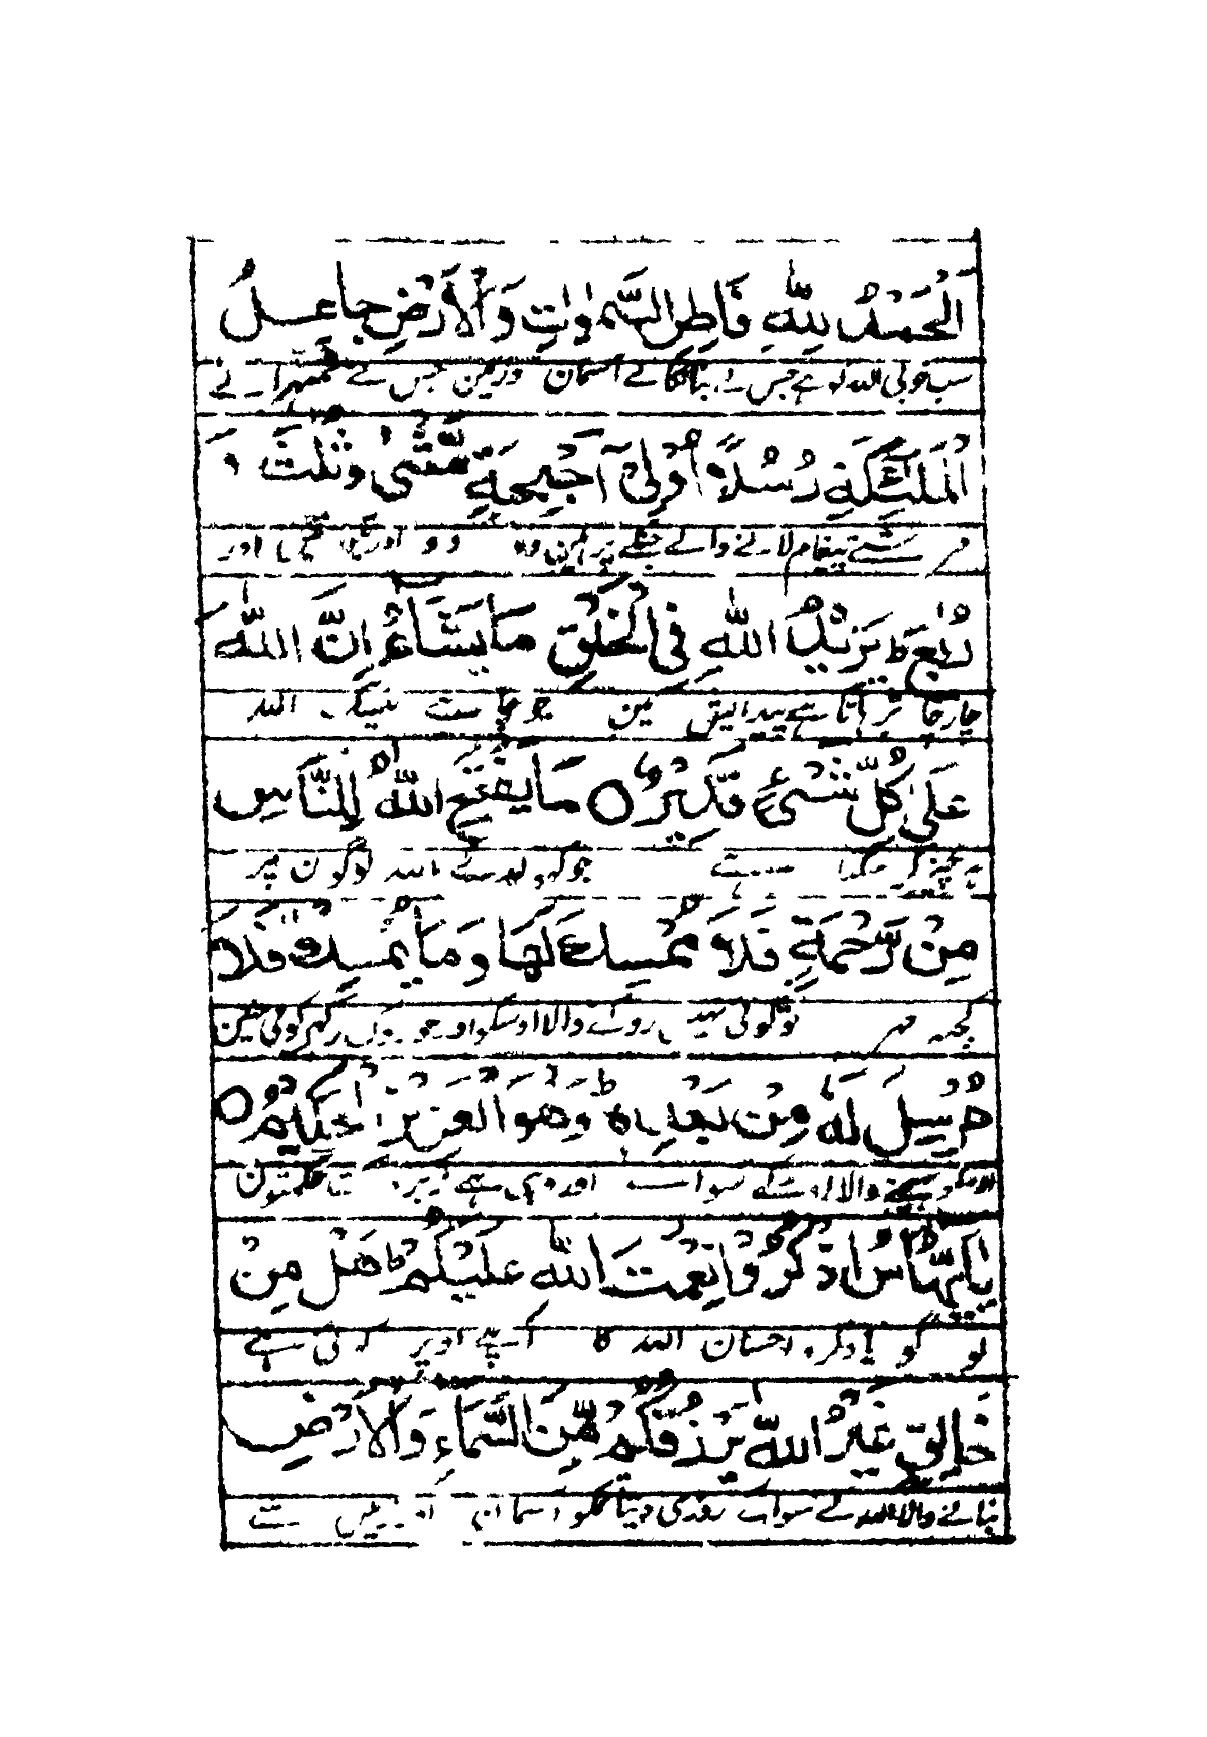 اَلْحَمْدُ لِلّٰهِ فَاطِرِ السَّمٰوٰتِ وَالْاَرْضِ جَاعِلُ
سب خوبی اللہ کو ہے جس نے بنا نکالے آسمان و زمین جس نے ٹھہرا نے
الْمَلٰٓئِكَةِ رُسُلًا اُولِيْٓ اَجْنِحَةٍ مَّثْنٰى وَثُلٰثَ وَ
فرشتے پیغام لانے والے جنکے پر ہین دو دو اور تین تین اور
رُبٰعَ ط يَزِيْدُ اللّٰهِ فِي الْخَلْقِ مَا يَشَآءُ اِنَّ اللّٰهَ
چار چار اللہ
عَلٰى كُلِّ شَيْءٍ قَدِيْرٌ ○ مَا يَفْتَحِ اللّٰهُ لِلنَّاسِ
ہر چیز جو کہول اللہ لوگون پر
مِنْ رَّحْمَةٍ فَلَا مُمْسِكَ لَهَا وَمَا يُمْسِكْ فَلَا
کچہ مہر تو کوئی نہین روکنے والا اوسکو اور جو کوئی نہین
مُرْسِلَ لَهٗ مِنْ بَعْدِهٖ ط وَهُوَ الْعَزِيْزُ الْحَكِيْمُ ○
والا اوسکے سوا اور وہی ہے
يٰٓاَيُّهَا النَّاسُ اذْكُرُوْا نِعْمَتَ اللّٰهِ عَلَيْكُمْ ط هَلْ مِنْ
لوگو یاد کرو احسان اللہ کا اپنے اوپر کوئی ہے
خَالِقٍ غَيْرُ اللّٰهِ يَرْزُقُكُمْ مِّنَ السَّمَآءِ وَالْاَرْضِ
بنانے والا اللہ کے سوا روزی دیتا تمکو آسمان اور زمین سے